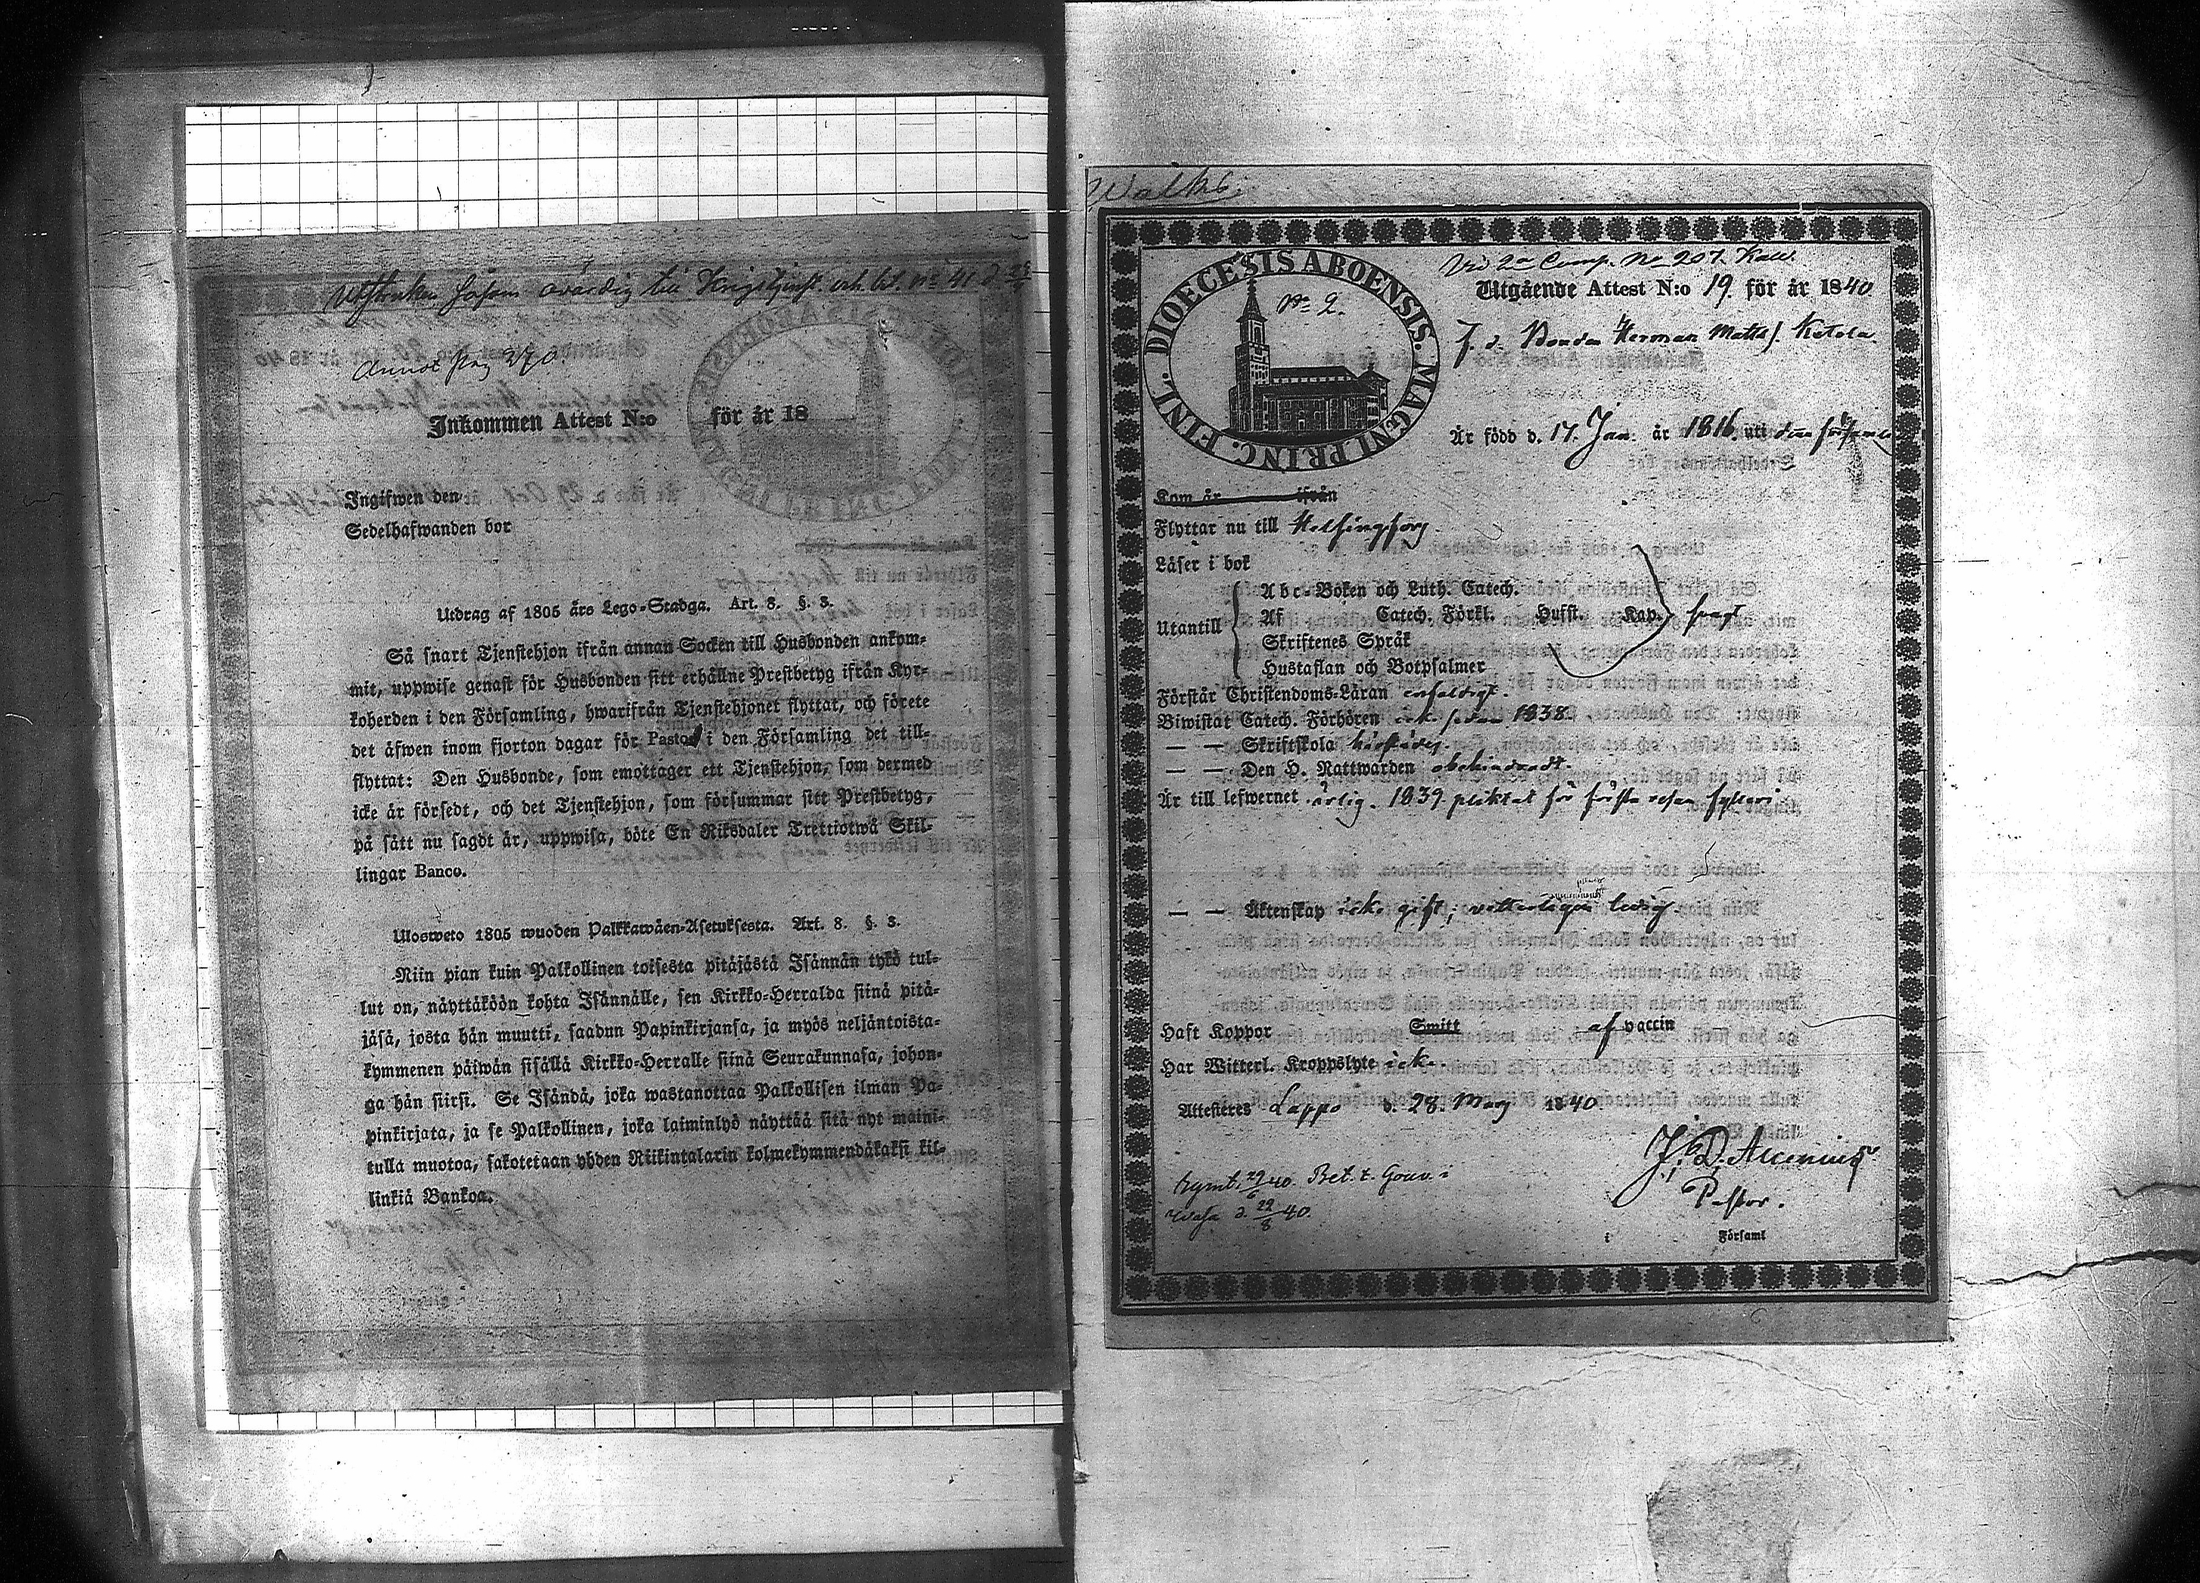 Utstruken såsom ovärdig till Krigstjenst enl. bl. No 41 d. 25
Annot pag 370.
Inkommen Attest N:o för år 18
Ingifwen den
Sedelhafwanden bor
Utdrag af 1805 års Lego-Stadga. Art. 8. §. 3.
Så snart Tjenstehjon ifrån annan Socken till Husbonden ankom-
mit, uppwise genast för Husbonden sitt erhållne Prestbetyg ifrån Kyr-
koherden i den Församling, hwarifrån Tjenstehjonet flyttat, och förete
det äfwen inom fjorton dagar för Pastor i den Församling det till-
flyttat: Den Husbonde, som emottager ett Tjenstehjon, som dermed
icke är försedt, och det Tjenstehjon, som försummar sitt Prestbetyg,
på sätt nu sagdt är, uppwisa, böte En Riksdaler Trettiotwå Skil-
lingar Banco.
Ulosweto 1805 wuoden Palkkawäen-Asetuksesta. Art. 8. §. 3.
Niin pian kuin Palkollinen toisesta pitäjästä Isännän tykö tul-
lut on, näyttäköön kohta Isännälle, sen Kirkko-Herralda siinä pitä-
jäsä, josta hän muutti, saadun Papinkirjansa, ja myös neljäntoista-
kymmenen päiwän sisällä Kirkko-Herralle siinä Seurakunnasa, johon-
ga hän siirsi. Se Isändä, joka wastanottaa Palkollisen ilman Pa-
pinkirjata, ja se Palkollinen, joka laiminlyö näyttää sitä nyt maini-
tulla muotoa, sakotetaan yhden Riikintalarin kolmekymmendäkaksi kil-
linkiä Bankoa.
Walki
DIOECESIS ABOENSIS. MAGNI PRINC. FINL.
No 2.
Vid 2a Comp. No 207. Kall.
Utgående Attest N:o 19. för år 1840
F. d. Bonden Herman Matts f. Ketola
Är född d. 17. Jan. år 1816. uti denna församl.
Kom år ifrån
Flyttar nu till Helsingfors.
Läser i bok
Utantill
Abc-Boken och Luth. Catech.
Af Catech. Förkl. Husst. Kap.
Skriftenes Språk
Hustaflan och Botpsalmer
svagt
Förstår Christendoms-Läran enfaldigt.
Biwistat Catech. Förhören ick. sedan 1838.
— — Skriftskola härstädes.
— — Den H. Nattwarden obehindradt.
Är till lefwernet ärlig. 1839 pliktat för första resan fylleri
— — Äktenskap icke gift, vetterligen ledig.
Haft Koppor Smitt af vaccin
Har Witterl. Kroppslyte ick.
Attesteres Lappo d. 28. Maj 1840
J. D. Alcenius
Pastor.
i Församl
Rymt. 29/6 40. Bet. t. Gouv. i
Wasa d. 22/8 40.